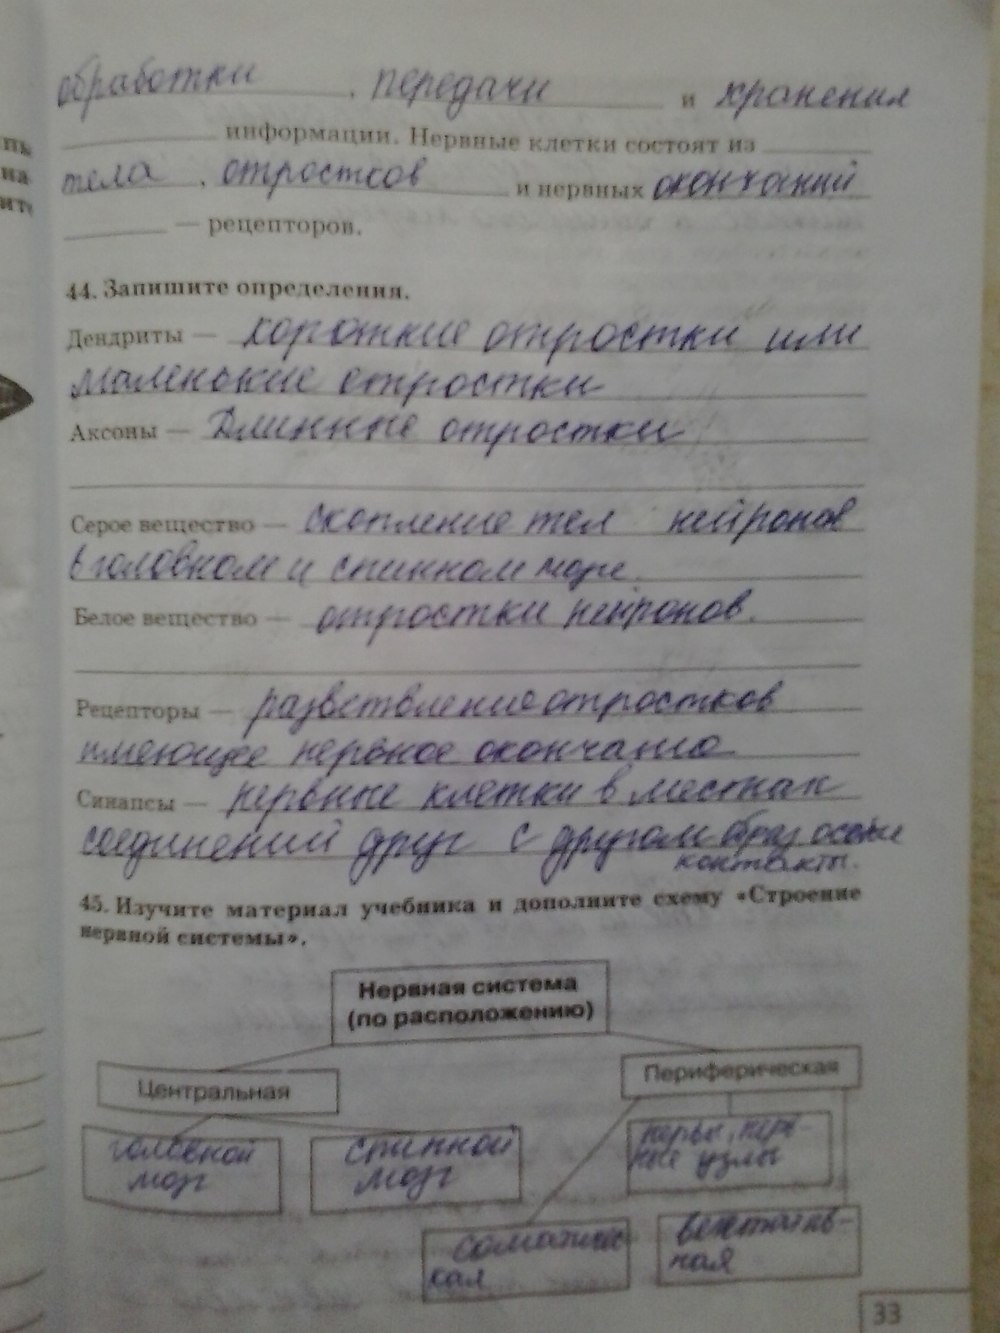 обработки, передачи и хранения
информации. Нервные клетки состоят из
тела, отростков и нервных окончаний
— рецепторов.
44. Запишите определения.
Дендриты — короткие отростки или
маленькие отростки
Аксоны — Длинные отростки
Серое вещество — скопление тел нейронов
в головном и спинном мозге.
Белое вещество — отростки нейронов.
Рецепторы — разветвление отростков
имеющее нервное окончание
Синапсы — нервные клетки в местах
соединений друг с другом образ особые
контакты.
45. Изучите материал учебника и дополните схему «Строение
нервной системы».
Нервная система
(по расположению)
Центральная
Периферическая
головной
мозг
спинной
мозг
нервы, нерв-
ные узлы
соматичес
кая
вегетатив-
ная
33